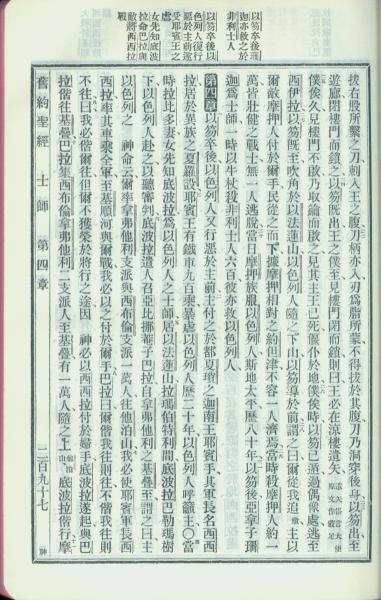 以笏卒後珊
迦亦救之於
非利士人
以笏卒後以
色列人復行
惡於主前遂
受耶賓王之
虐
女先知底波
拉命巴拉與
敵將西西拉
戰
拔右股所繫之刀刺入王之腹刀柄亦入刃爲脂所蒙不得拔於其腹刀乃洞穿後身以笏出至
遊廊閉樓門而鎖之以笏既出王之僕至見樓門閉而鎖則曰王必在涼樓遺矢遺矢俗言大便原文作蔽足
僕俟久見樓門不啟乃取鑰而啟之見其主王已死偃仆於地僕俟時以笏已遁過偶像處逃至
西伊拉以笏既至吹角於以法蓮山以色列人隨之下山以笏導於前謂之曰爾從我追 主以
爾敵摩押人付於爾手民從之而下據摩押相對之約但津不容一人濟焉當時殺摩押人約一
萬皆壯健之戰士無一人逃脫當日摩押族服以色列人斯地太平歷八十年以笏後亞拿子珊
迦爲士師一時以牛杖殺非利士人六百彼亦救以色列人
第四章以笏卒後以色列人又行惡於主前主付之於都夏瑣之迦南王耶賓手其軍長名西西
拉居於異族之夏羅設耶賓王有鐵車九百乘暴虐以色列人歷二十年以色列人呼籲主〇當
時拉比多妻女先知底波拉爲以色列人之士師居以法蓮山拉瑪伯特利間底波拉巴勒瑪樹
下以色列人赴之以聽審判底波拉遣人召亞比挪菴子巴拉自拿弗他利之基疊至謂之曰主
以色列之 神命云爾率拿弗他利支派與西布倫支派一萬人往他泊山我必使耶賓軍長西
西拉率其車乘全軍至基順河與爾戰我必以之付於爾手巴拉曰爾偕我往則往不偕我往則
不往曰我必偕爾往但爾不獲榮於將行之途因 神必以西西拉付於婦手底波拉遂起與巴
拉偕往基疊巴拉集西布倫拿弗他利二支派人至基疊有一萬人隨之上他泊山底波拉偕行摩
舊約聖經 士師 第四章 二百九十七